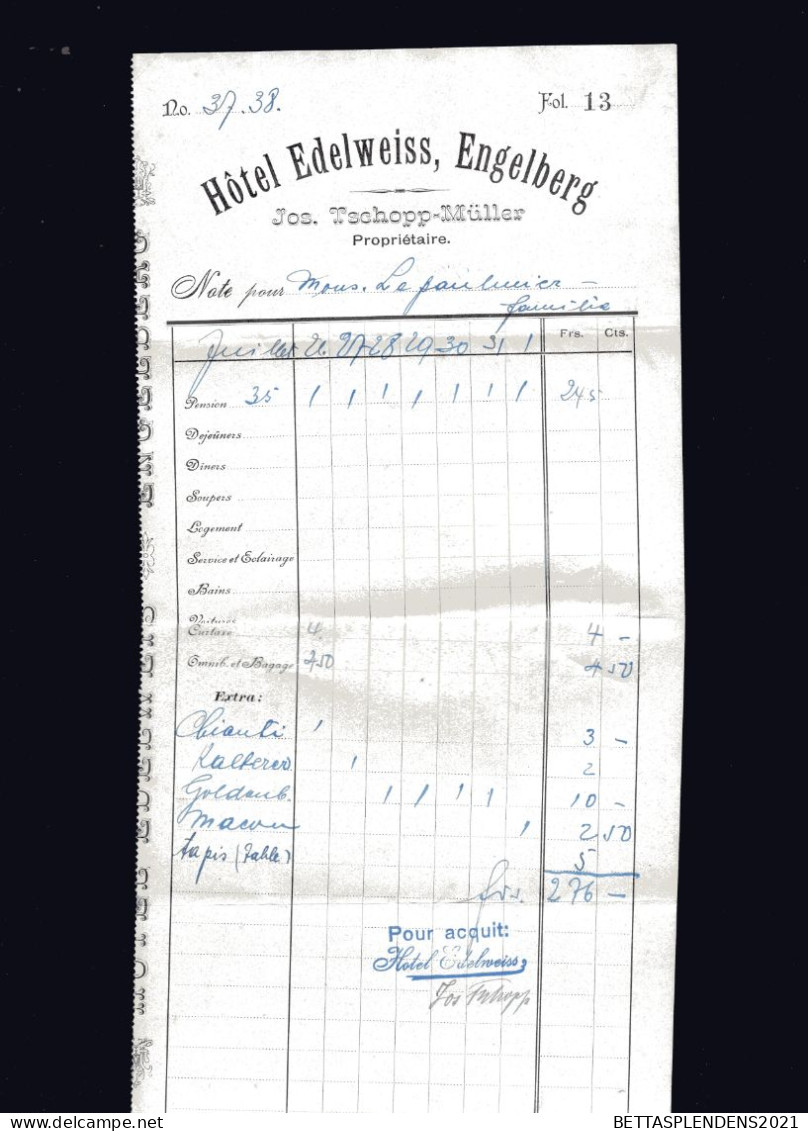 No. 37.38. Fol. 13
Hôtel Edelweiss, Engelberg
Jos. Tschopp-Müller
Propriétaire.
Note pour Mons. Lepaulmier -
famille
Frs. Cts.
Juillet 26 27 28 29 30 31 1
Pension 35 1 1 1 1 1 1 1 245
Dejeûners
Dîners
Soupers
Logement
Service et Eclairage
Bains
Voitures
Curtaxe 4. 4 -
Omnib. et Bagage 4 50
Extra:
Chianti 1 3 -
Kalterer 1 2
Goldenb. 1 1 1 1 10 -
Macon 1 2 50
tapis (table) 5
frs. 276 -
Pour acquit:
Hotel Edelweiss
Jos Tschopp
HOTEL EDELWEISS ENGELBERG
BETTASPLENDENS2021